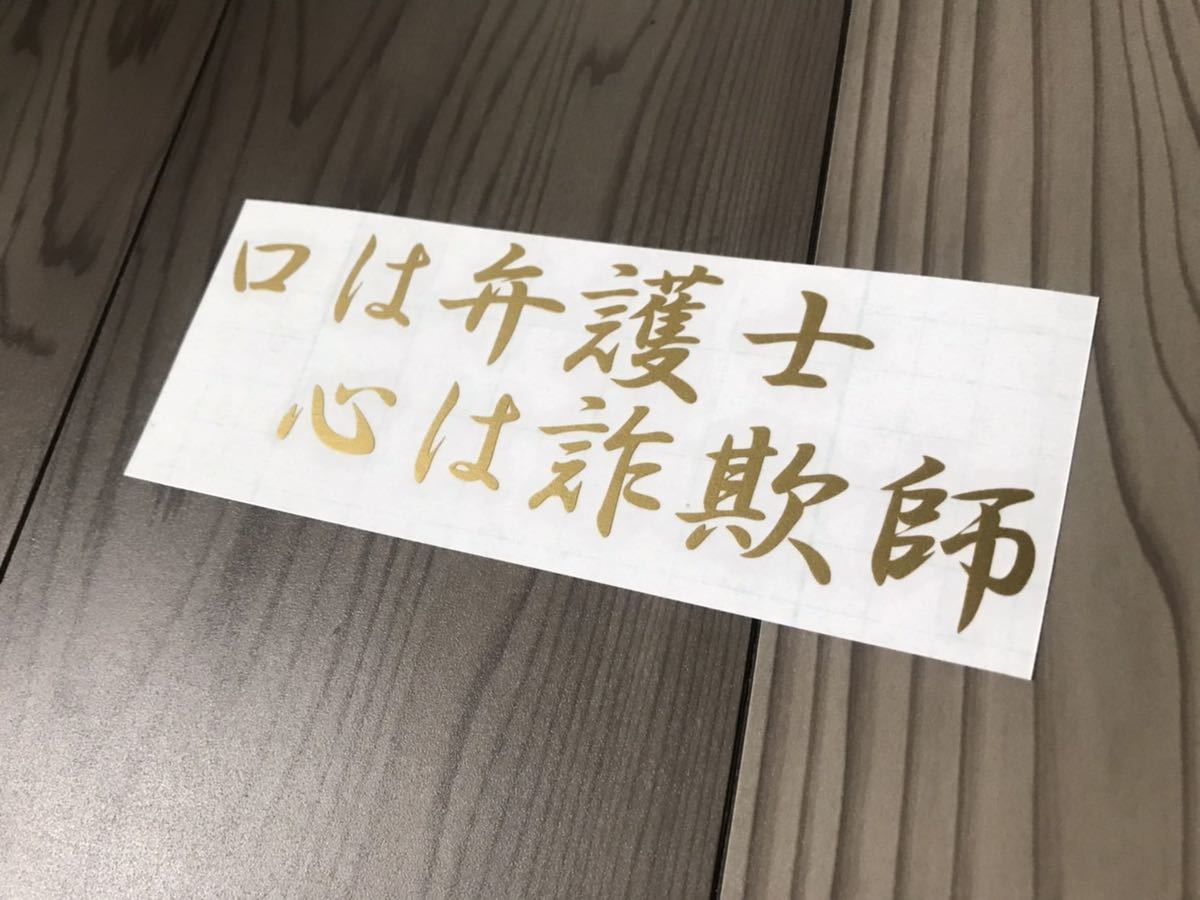 口は弁護士
心は詐欺師